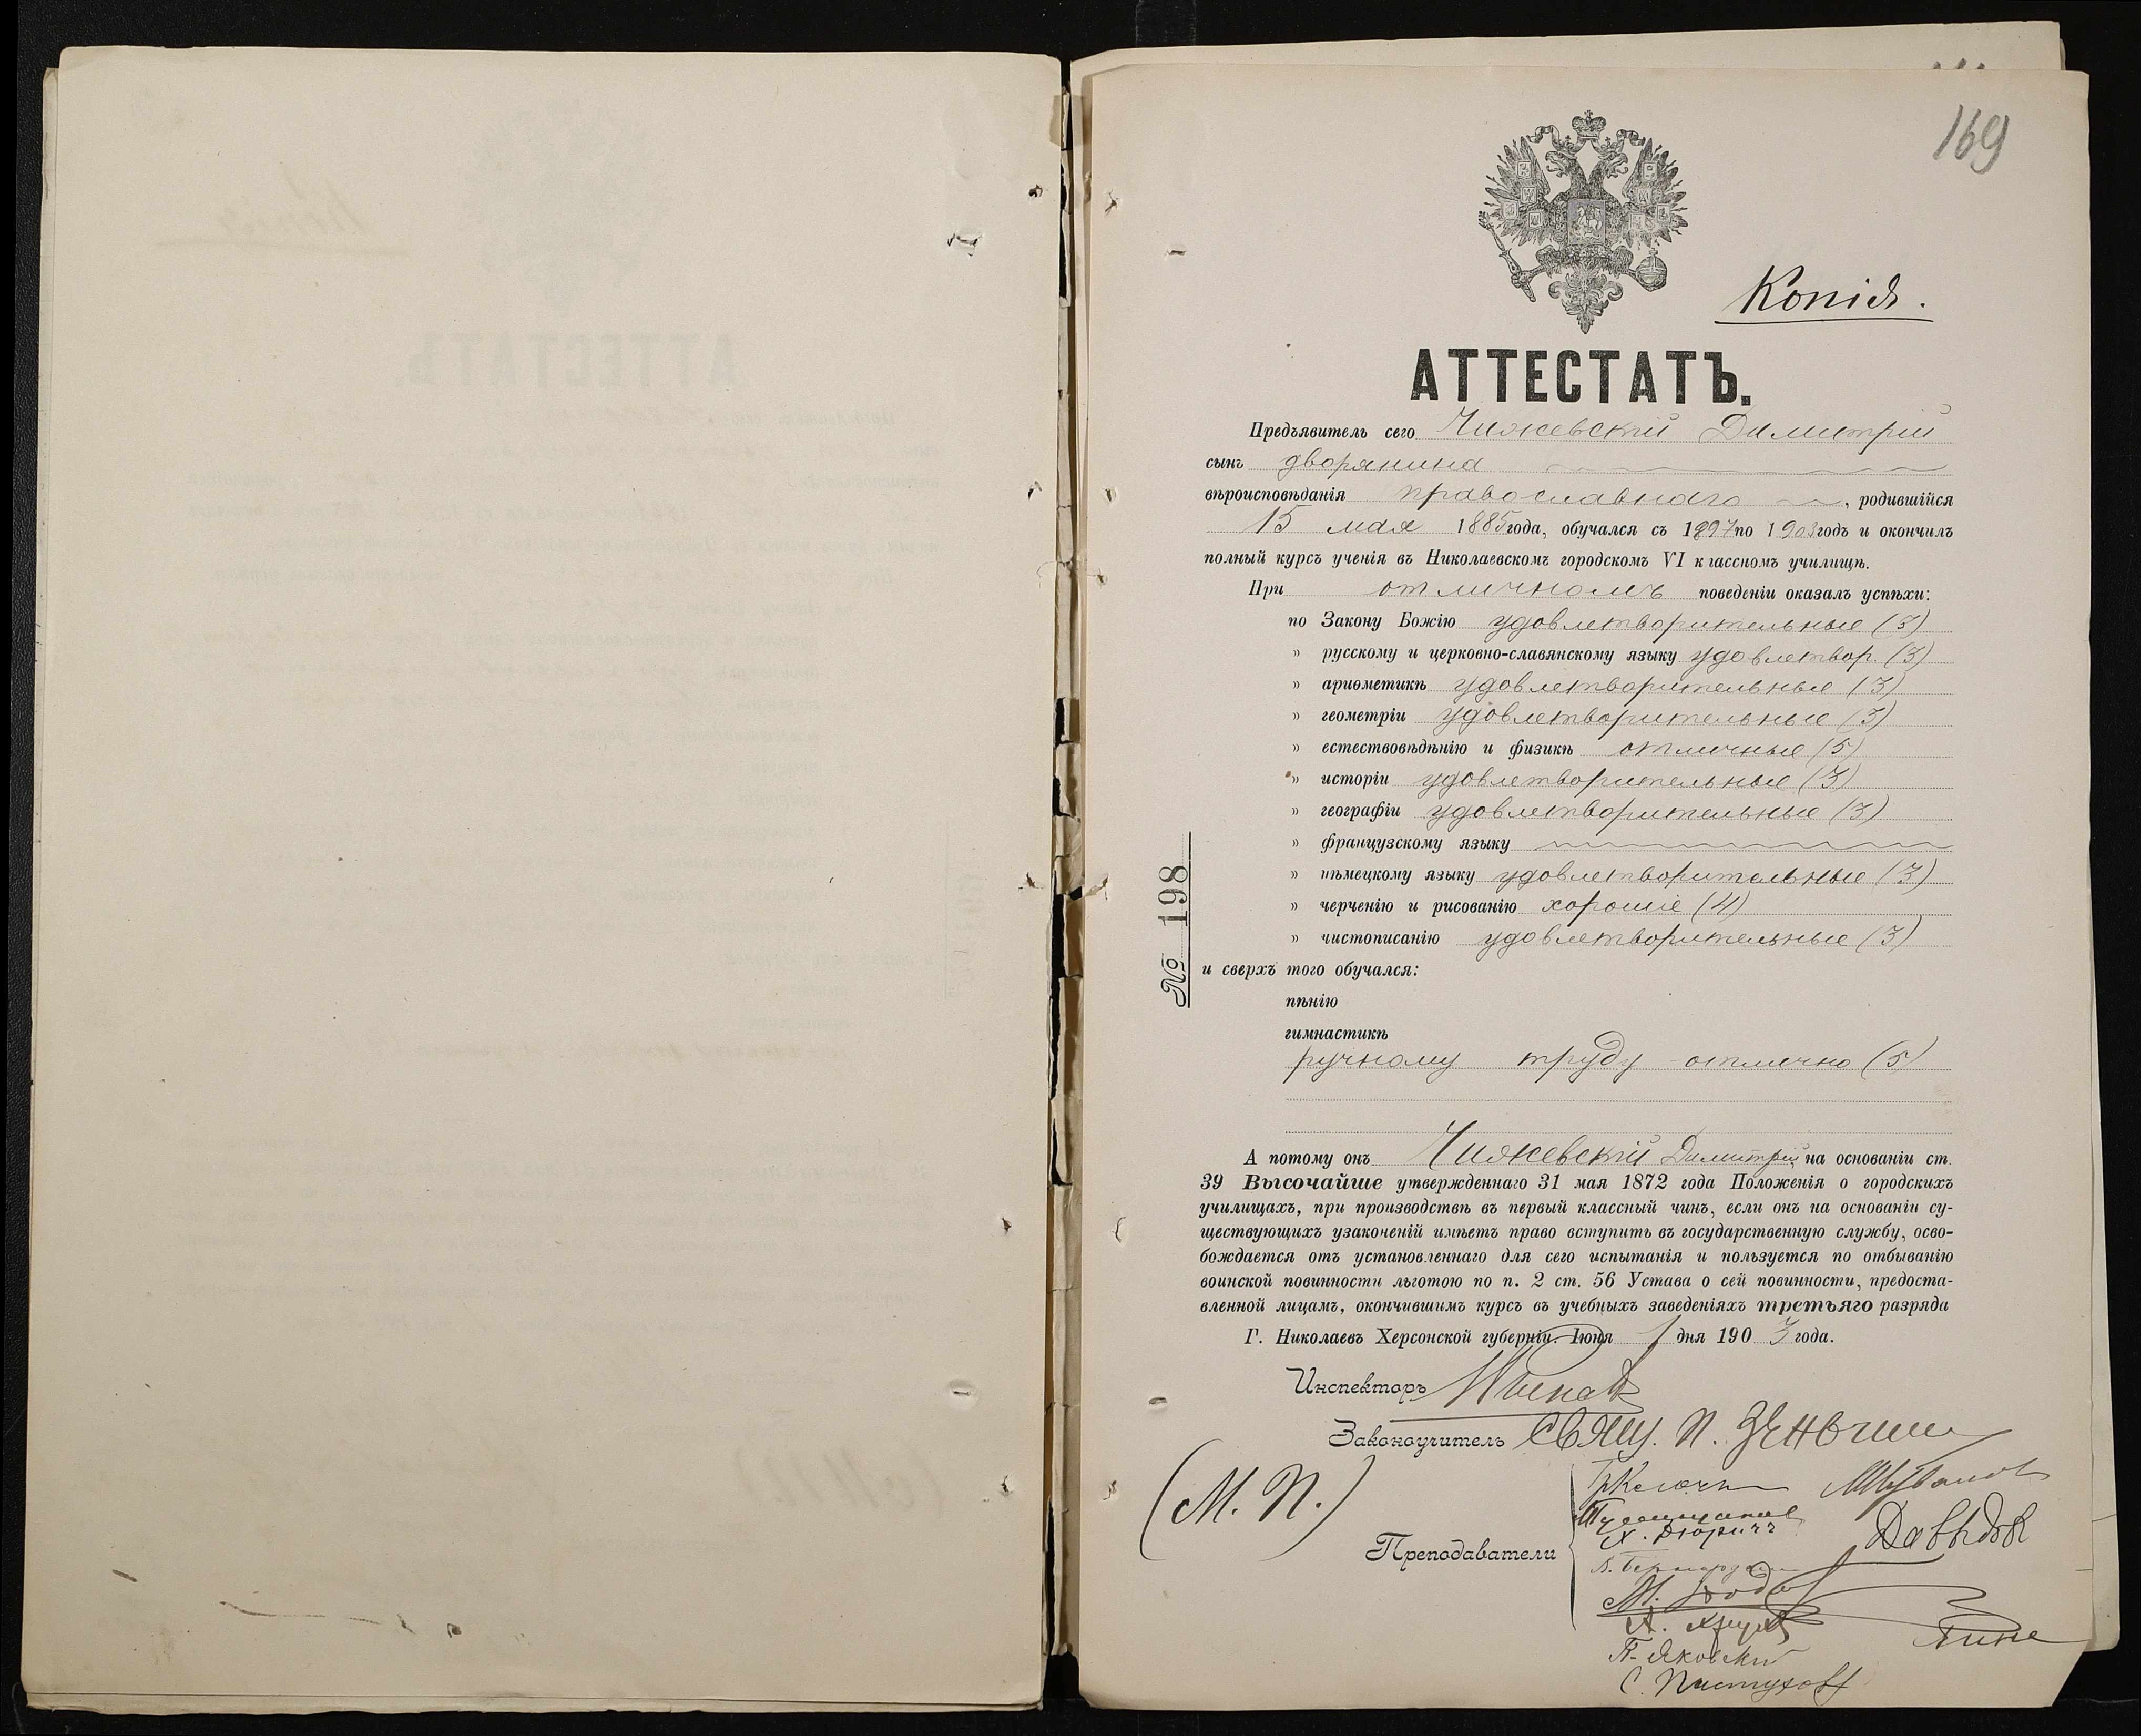 169
Копія.
АТТЕСТАТЪ.
Предъявитель сего Чижевскій Димитрій
сынъ дворянина
вѣроисповѣданія православнаго, родившійся
15 мая 1885 года, обучался съ 1897 по 1903 годъ и окончилъ
полный курсъ ученія въ Николаевскомъ городскомъ VI классномъ училищѣ.
При отличномъ поведеніи оказалъ успѣхи:
по Закону Божію удовлетворительные (3)
" русскому и церковно-славянскому языку удовлетвор. (3)
" ариѳметикѣ удовлетворительные (3)
" геометріи удовлетворительные (3)
" естествовѣдѣнію и физикѣ отличные (5)
" исторіи удовлетворительные (3)
" географіи удовлетворительные (3)
" французскому языку
" нѣмецкому языку удовлетворительные (3)
" черченію и рисованію хорошіе (4)
" чистописанію удовлетворительные (3)
№ 198
и сверхъ того обучался:
пѣнію
гимнастикѣ
ручному труду - отлично (5)
А потому онъ Чижевскій Димитрій на основаніи ст.
39 Высочайше утвержденнаго 31 мая 1872 года Положенія о городскихъ
училищахъ, при производствѣ въ первый классный чинъ, если онъ на основаніи су-
ществующихъ узаконеній имѣетъ право вступить въ государственную службу, осво-
бождается отъ установленнаго для сего испытанія и пользуется по отбыванію
воинской повинности льготою по п. 2 ст. 56 Устава о сей повинности, предоста-
вленной лицамъ, окончившимъ курсъ въ учебныхъ заведеніяхъ третьяго разряда
Г. Николаевъ Херсонской губерніи. Іюня 1 дня 1903 года.
Инспекторъ
Законоучитель Свящ. П.
(М. П.)
Преподаватели
Х. Дюричъ
Давыдов
П. Яковскій
С. Пастуховъ